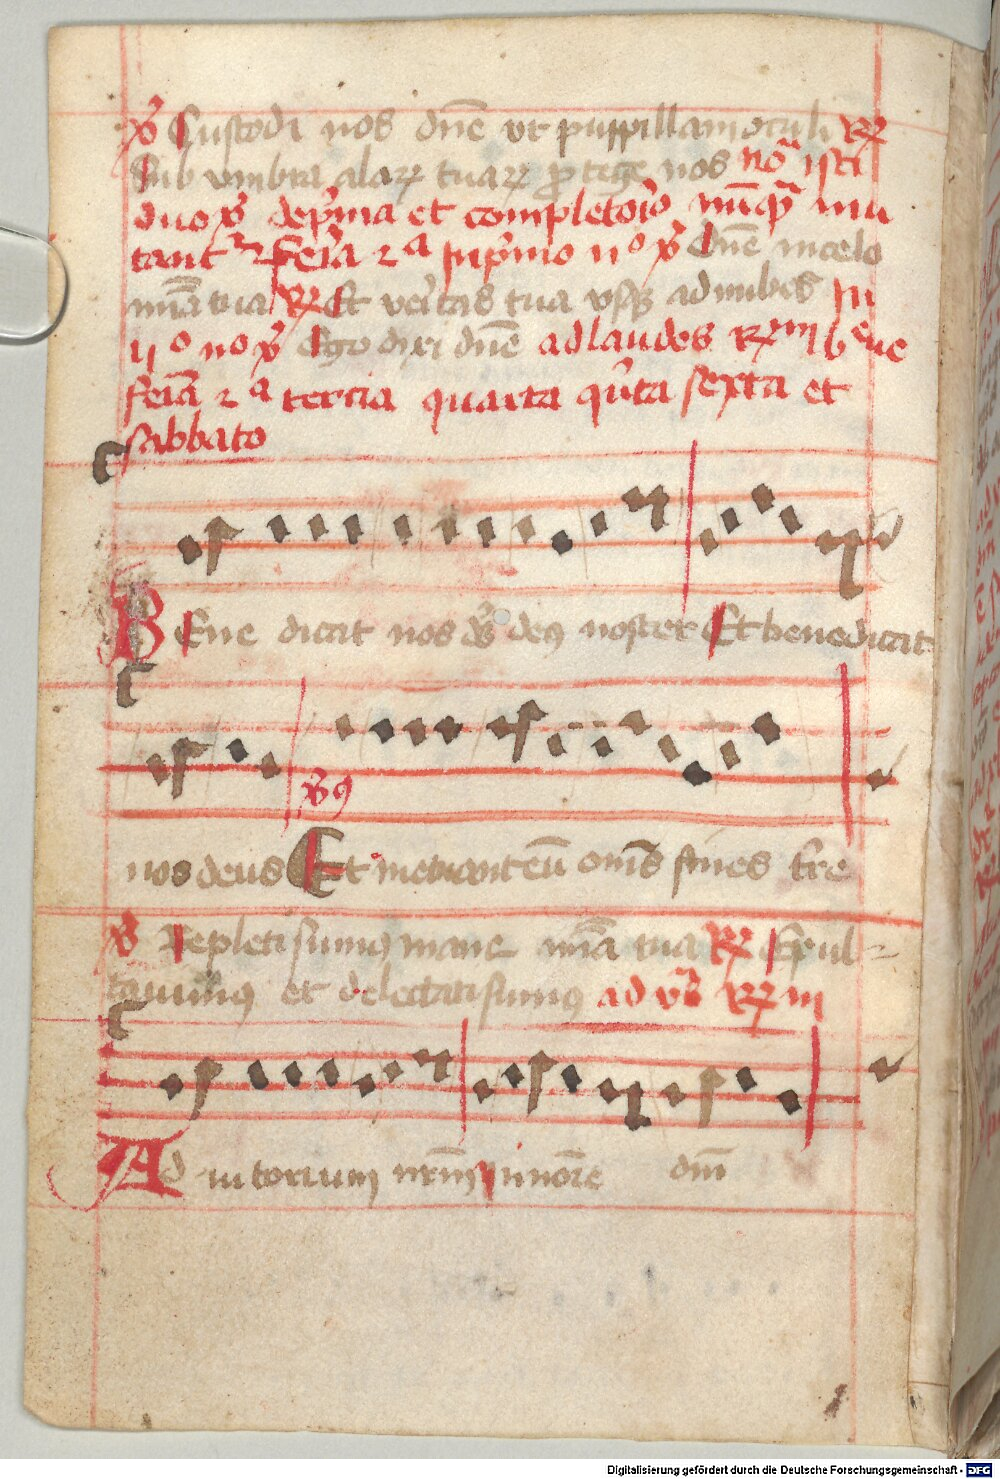 ℣ Custodi nos dn̄e vt puppillam oculi ℟
Sub vmbra alaꝝ tuaꝝ ꝓtege nos Noͣ isti
duo ℣ de pͥma et completoͥo nūqͣ mu
tantͬ feͥa 2ᵃ In pͥmo nᵒ ℣ Dn̄e in celo
mīa tua ℟ Et veͥtas tua vsqꝫ ad nubes In
ijᵒ nᵒ ℣ Ego dixi dn̄e ad laudes ℟m bene
feͥa 2ᵃ tercia quarta qͥnta sexta et
sabbato
BEne dicat nos dꝰs deꝰ noster Et benedicat
℣ꝰ
nos deus Et metuant eū om̄s fines tre
℣ Repleti sumꝰ mane mīa tua ℟ Exul-
tauimꝰ et delectati sumꝰ ad vꝰ ℟m
Ad iutorium nrm̄ in noīe dnī
Digitalisierung gefördert durch die Deutsche Forschungsgemeinschaft - DFG